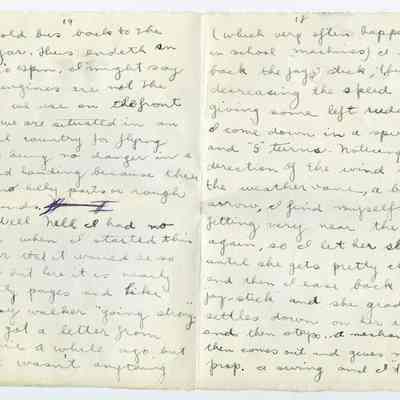 19
old bus back to the
gar. Thus endeth an
spin, I might say
engines are not the
we use on the front
we are situated in an
l country for flying
being no danger in a
d landing because they
no hilly parts or rough
nds.
Well Nell I had no
when I started this
it would be so
but here it is nearly
ty pages and like
ny walker "going strong
got a letter from
a while ago but
wasn't anything
18
(which very often happe
in school machines) I
back the "joy" stick, thu
decreasing the speed
giving some left rudd
I come down in a spi
and "S" turns. Noticing
direction of the wind
the weather vane, a b
arrow, I find myself
getting very near the
again, so I let her s
until she gets pretty cl
and then I ease back
joy-stick and she grad
settles down on her
and then stops.. a mechan
then comes out and gives
prop. a swing and I